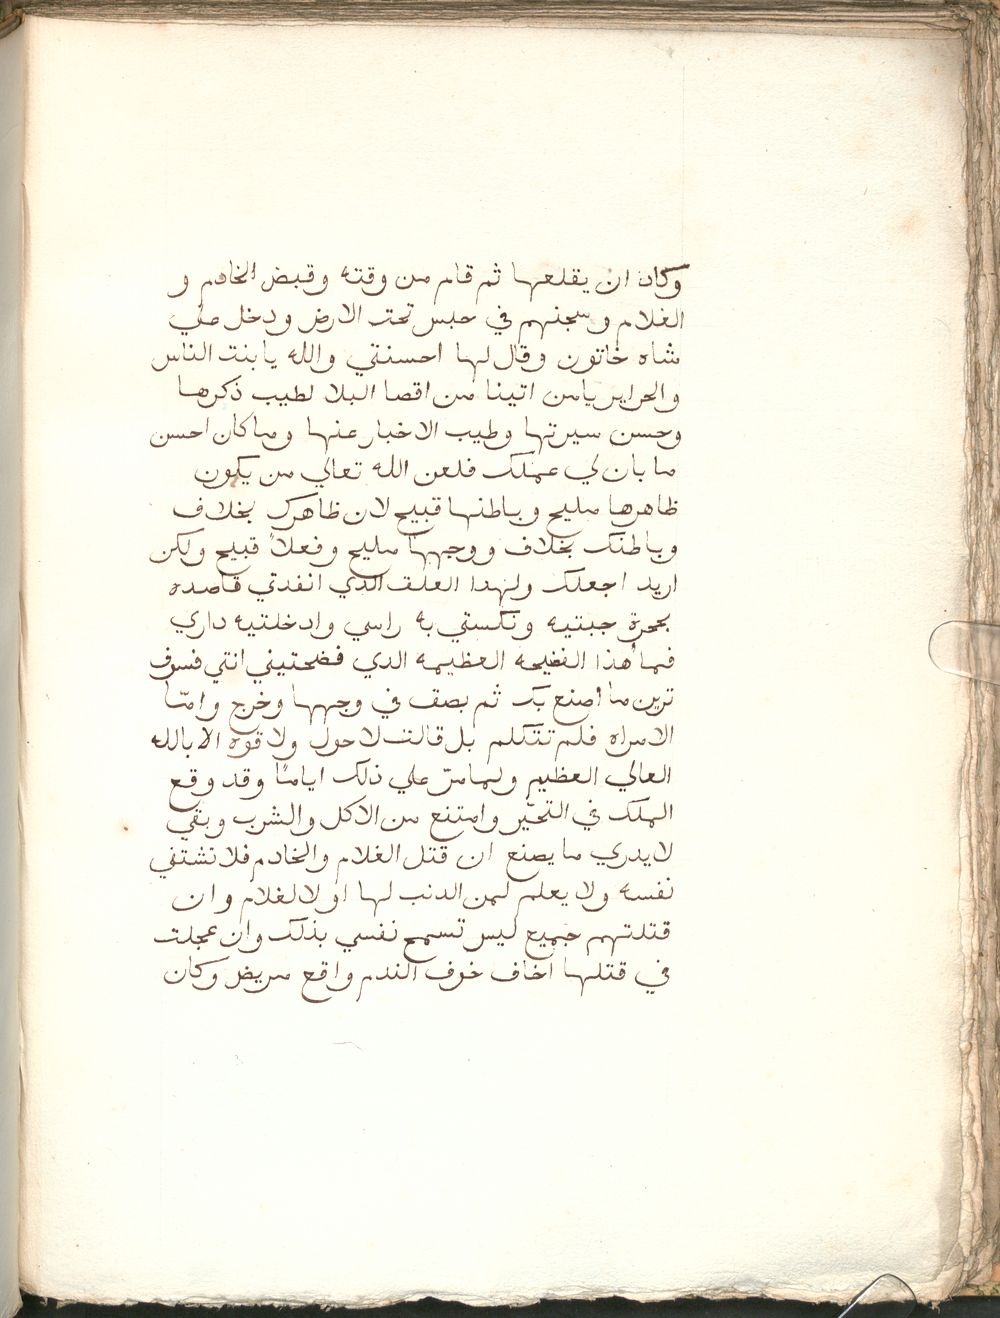 وكاد ان يقلعها ثم قام من وقته وقبض الخادم و
الغلام وسجنهم في حبس تحت الارض ودخل علي
شاه خاتون وقال لها احسنتي والله يا بنت الناس
والحراير يا من اتينا من اقصا البلا لطيب ذكرها
وحسن سيرتها وطيب الاخبار عنها وما كان احسن
ما بان لي عملك فلعن الله تعالي من يكون
ظاهرها مليح وباطنها قبيح لان ظاهرك بخلاف
وباطنك بخلاف ووجهها مليح وفعلا قبيح ولكن
اريد اجعلك ولهدا العلق الدي انفدتي قاصده
بحجرة جبتيه ونكستي به راسي وادخلتيه داري
فما هذا الفضيحه العظيمه الدي فضحتيني انتي فسوف
ترين ما اصنع بك ثم بصق في وجهها وخرج وامّا
الامراه فلم تتكلم بل قالت لا حول ولا قوه الا بالله
العالي العظيم ولما مرّ علي ذلك اياماً وقد وقع
الملك في التحيّر وامتنع من الاكل والشرب وبقي
لا يدري ما يصنع ان قتل الغلام والخادم فلا تشتفي
نفسه ولا يعلم لمن الدنب لها او لالغلام وان
قتلتهم جميع ليس تسمح نفسي بذلك وان عجلت
في قتلها اخاف خوف الندم واقع مريض وكان